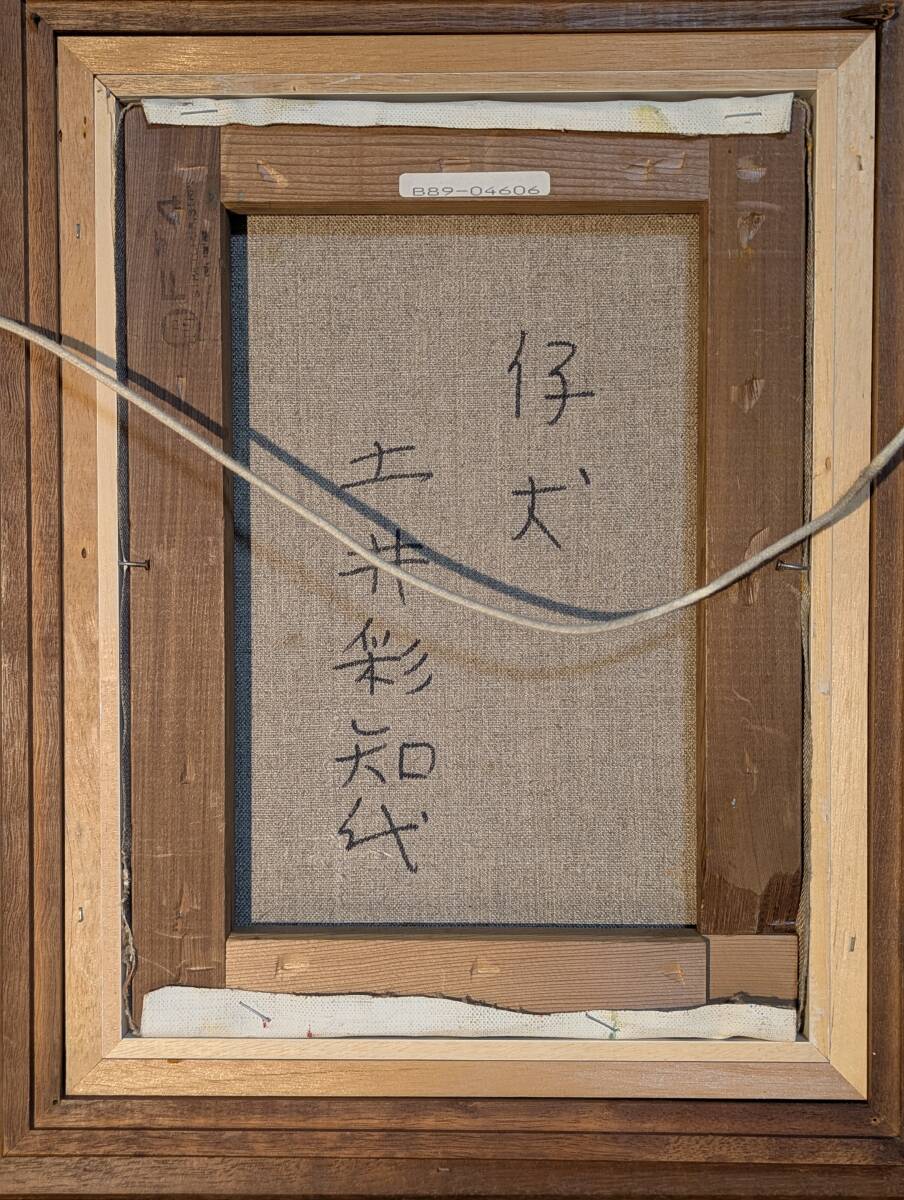 B89-04606
F 4
仔犬
土井彩知代